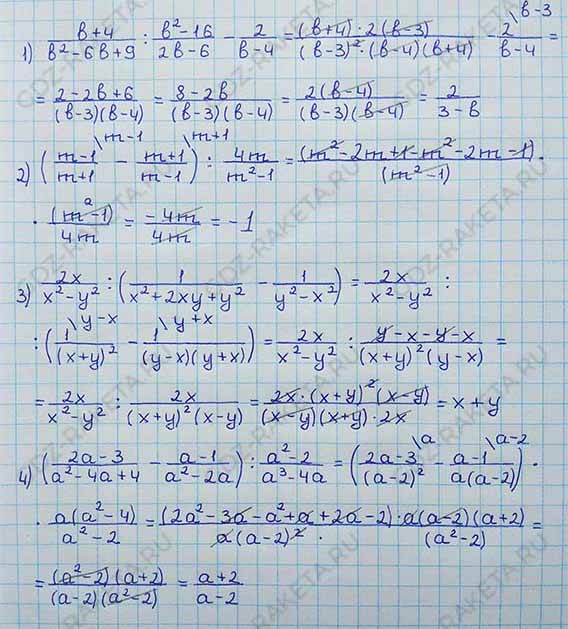 1) (в+4)/(в²-6в+9) : (в²-16)/(2в-6) - 2/(в-4) = ((в+4)·2(в-3))/((в-3)²·(в-4)(в+4)) - 2\в-3/(в-4) =
= (2-2в+6)/((в-3)(в-4)) = (8-2в)/((в-3)(в-4)) = 2(в-4)/((в-3)(в-4)) = 2/(3-в)
2) ((m-1)\m-1/(m+1) - (m+1)\m+1/(m-1)) : 4m/(m²-1) = (m²-2m+1-m²-2m-1)/(m²-1) ·
· (m²-1)/4m = -4m/4m = -1
3) 2x/(x²-y²) : (1/(x²+2xy+y²) - 1/(y²-x²)) = 2x/(x²-y²) :
: (1\y-x/(x+y)² - 1\y+x/((y-x)(y+x))) = 2x/(x²-y²) : (y-x-y-x)/((x+y)²(y-x)) =
= 2x/(x²-y²) : 2x/((x+y)²(x-y)) = (2x·(x+y)²(x-y))/((x-y)(x+y)·2x) = x+y
4) ((2a-3)/(a²-4a+4) - (a-1)/(a²-2a)) : (a²-2)/(a³-4a) = ((2a-3)\a/(a-2)² - (a-1)\a-2/(a(a-2))) ·
· a(a²-4)/(a²-2) = ((2a²-3a-a²+a+2a-2)·a(a-2)(a+2))/(a(a-2)²·(a²-2)) =
= ((a²-2)(a+2))/((a-2)(a²-2)) = (a+2)/(a-2)
GDZ-RAKETA.RU